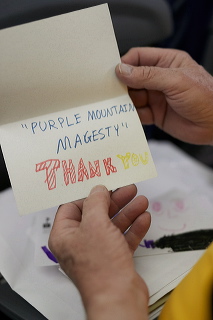 "PURPLE MOUNTAIN
MAGESTY"
THANK YOU